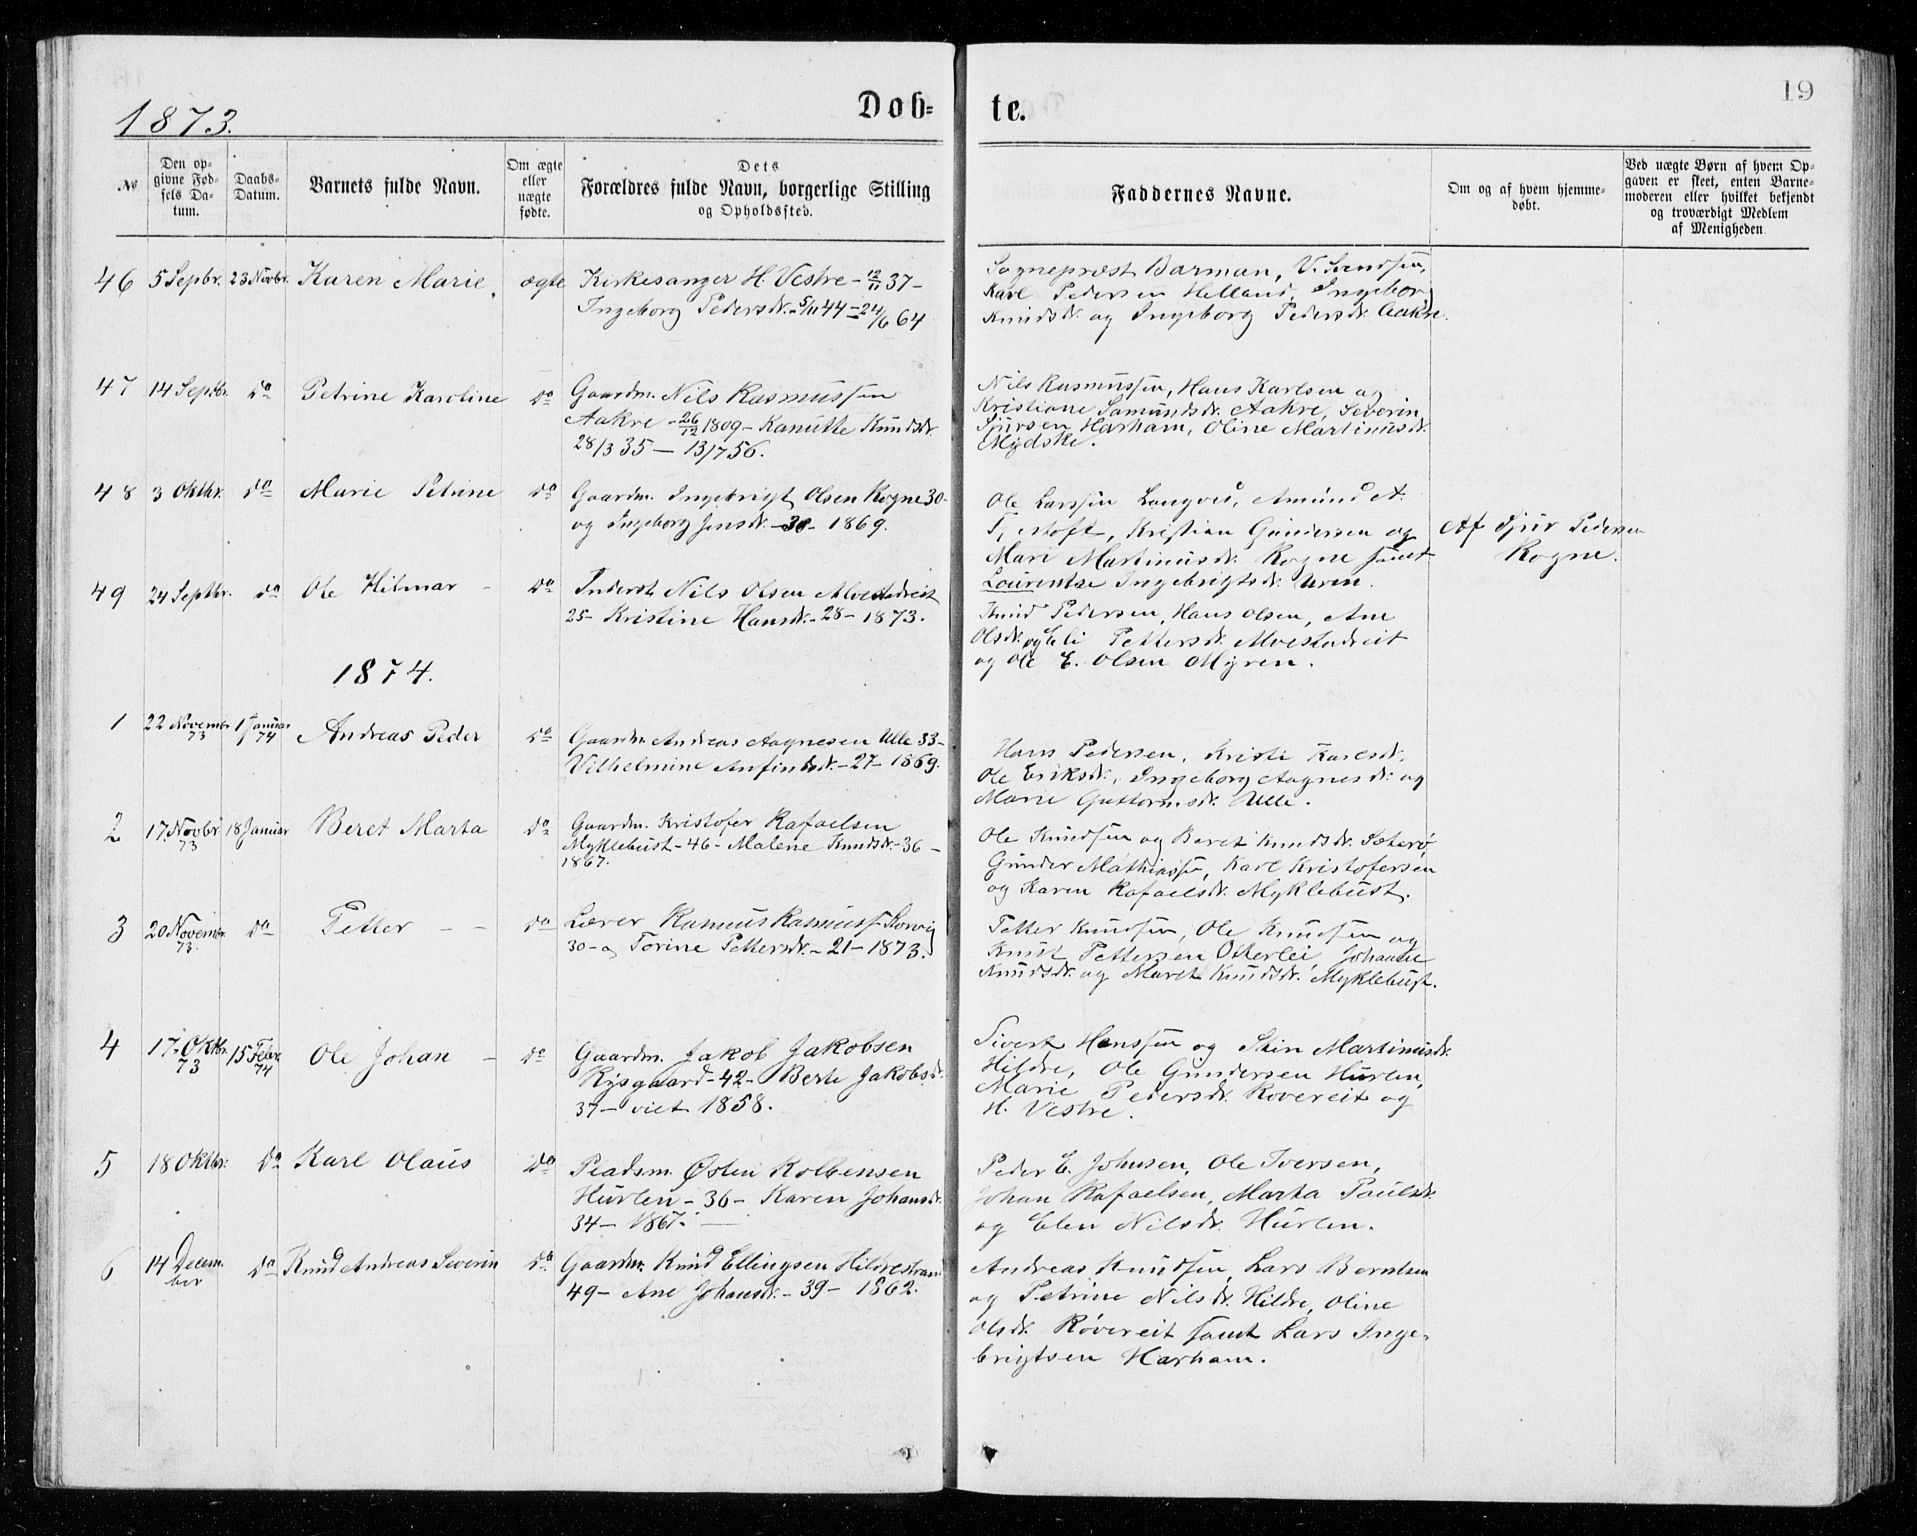 19
1873.
Døb-
te.
№
Den op-
givne Fød-
sels Da-
tum.
Daabs-
Datum.
Barnets fulde Navn.
Om ægte
eller
uægte
fødte.
Dets
Forældres fulde Navn, borgerlige Stilling
og Opholdssted.
Faddernes Navne.
Om og af hvem hjemme-
døbt.
Ved uægte Børn af hvem Op-
gaven er skeet, enten Barne-
moderen eller hvilket bekjendt
og troværdigt Medlem
af Menigheden
46 5 Sepbr. 23 Novbr. Karen Marie. ægte Kirkesanger H. Vestre - 12/11 37 -
Ingeborg Pedersdr. - 5/11 44 - 24/6 64
Sognepræst Barman, V. Svendsen,
Karl Pedersen Helland, Ingeborg
Knudsdr. og Ingeborg Pedersdr. Aakre.
47 14 Septbr. do Petrine Karoline do Gaardm. Nils Rasmussen
Aakre - 26/12 1809 - Kanutte Knudsdr.
28/3 35 - 13/7 56.
Nils Rasmussen, Hans Karlsen og
Kristiane Samundsdr. Aakre, Severin
Sjursen Harham, Oline Martinusdr.
Mydske.
48 3 Oktbr. do Marie Petrine do Gaardm. Ingebrigt Olsen Rogne 30 -
og Ingeborg Jensdr. - 30 - 1869.
Ole Larssen Longved, Amund A.
Kristian Gundersen og
Mari Martinusdr. Rogne samt
Lourentze Ingebrigtsdr. Uren.
Af Sjur Pedersen
Rogne.
49 24 Septbr. do Ole Hilmar - do Inderst Nils Olsen Alvestadreit
25 - Kristine Hansdr. - 28 - 1873.
Knud Pedersen, Hans Olsen, Ane
Olsdr. og Eli Pettersdr. Alvestadreit
og Ole E. Olsen Myren.
1874.
1 22 Novembr 73 1 Januar 74 Andreas Peder do Gaardm. Andreas Aagnesen Ulle 33 -
Vilhelmine Anfindsdr. - 27 - 1869.
Hans Pedersen, Kristi Karlsdr.
Ole Eriksdr., Ingeborg Aagnesdr. og
Marie Guttormsdr. Ulle.
2 17. Novbr 73 18 Januar Beret Marta do Gaardm. Kristofer Rafaelsen
Myklebust - 46 - Malene Knudsdr. - 36 -
1867.
Ole Knudsen og Beret Knudsdr. Sæterø,
Gunder Mathiassen, Karl Kristofersen
og Karen Rafaelsdr. Myklebust.
3 20 Novembr. 73. do Petter - - do Lærer Rasmus Rasmuss. Storvig
30 - og Torine Pettersdr. - 21 - 1873.
Petter Knudsen, Ole Knudsen og
Knut Pettersen Otterlei, Johanne
Knudsdr. og Maret Knudsdr. Myklebust.
4 17. Oktbr. 73 15 Febr. 74 Ole Johan - do Gaardm. Jakob Jakobsen
Rysgaard - 42 - Berte Jakobsdr.
37 - viet 1858.
Sivert Hanssen og Stin Martinusdr.
Hildre, Ole Gundersen Hurlen,
Marie Pedersdr. Rovereit og
H. Vestre.
5 18 Oktbr. do Karl Olaus do Pladsm. Østen Kolbensen
Hurlen - 36 - Karen Johansdr.
34 - 1867. -
Peder E. Johnsen, Ole Iversen,
Johan Rafaelsen, Marta Paulsdr.
og Elen Nilsdr. Hurlen.
6 14 Decem-
ber do Knud Andreas Severin do Gaardm. Knud Ellingsen Hildrestrand
49 - Ane Johansdr. - 39 - 1862.
Andreas Knudsen, Lars Berntsen
og Petrine Nilsdr. Hildre, Oline
Olsdr. Røvereit samt Lars Inge-
brigtsen Harham.